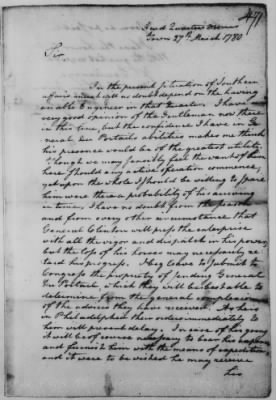 47
Head Quarters Morris
Town 27th March 1780
Sir
In the present situation of Southern
affairs much will no doubt depend on the having
an able Engineer in that quarter. I have a
very good opinion of the Gentlemen now there
in this line, but the confidence I have in Ge-
neral du Portails abilities makes me think
his presence would be of the greatest utility.
Though we may possibly feel the want of him
here should any active operations commence,
yet upon the whole I should be willing to spare
him were there a probability of his arriving
in time. I have no doubt from the season
and from every other circumstance that
General Clinton will press the enterprise
with all the vigor and dispatch in his power,
but the loss of his horses may necessarily re-
tard his progress. I beg leave to submit to
Congress the propriety of sending General
du Portail, which they will be best able to
determine from the general complexion
of the advices they have received. As he is
in Philadelphia their orders immediately to
him will prevent delay. In case of his going
it will be of course necessary to bear his expences
and furnish him with the means of expedition
and it were to be wished he may receive